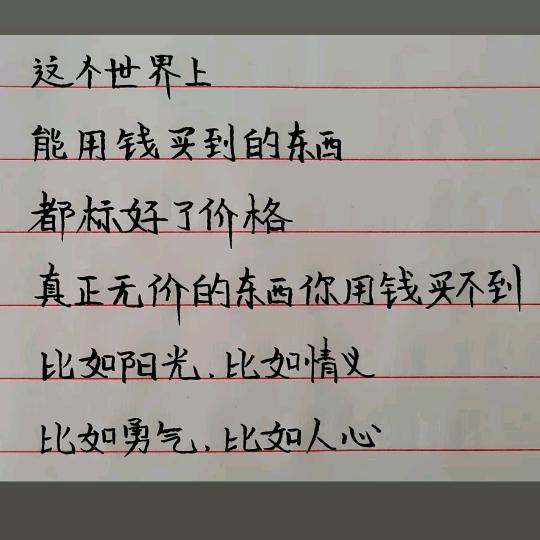 这个世界上
能用钱买到的东西
都标好了价格
真正无价的东西你用钱买不到
比如阳光.比如情义
比如勇气.比如人心